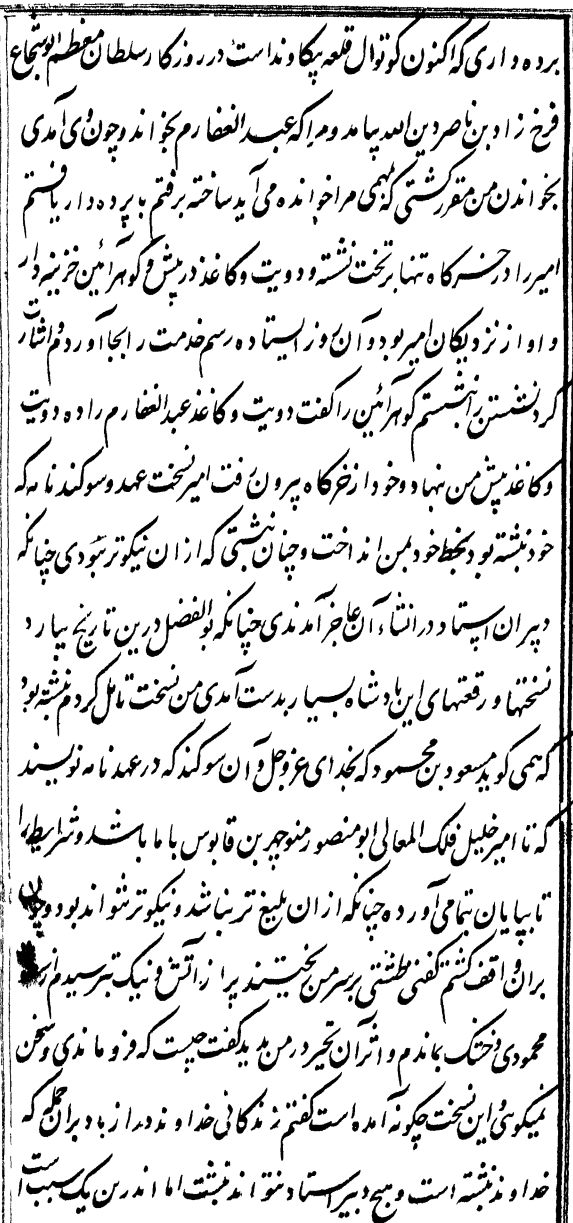 برده داری که اکنون کوتوال قلعه بیکاوند است در روزکار سلطان معظم ابوشجاع
فرخ زاد بن ناصر دین الله بیامد ومرا که عبد الغفارم بخواند وچون وی آمدی
بخواندن من مقرر کشتی که بمهمی مرا خوانده می آید ساخته برفتم با پرده دار یافتم
امیر را در خرکاه تنها بر تخت نشسته و دویت وکاغذ در پیش وکوهر آئین خزینه دار
و او از نزدیکان امیر بود و آن روز ایستاده رسم خدمت را بجا آوردم و اشارت
کرد نشستن را بنشستم کوهر آئین را کفت دویت وکاغذ عبدالغفار م را ده دویت
وکاغذ پیش من نهاد وخود از خرکاه بیرون رفت امیر نسخت عهد وسوکند نامه که
خود نبشته بود بخط خود بمن انداخت وچنان نبشتی که از ان نیکوتر نبودی چنانکه
دبیران استاد در انشاء آن عاجز آمدندی چنانکه بوالفضل درین تاریخ بیارد
نسختها ورقعتهای این بادشاه بسیار بدست آمدی من نسخت تامل کردم نبشته بود
که همی کوید مسعود بن محمود که بخدای عز وجل وآن سوکند که در عهد نامه نویسند
که تا امیر جلیل فلک المعالی ابو منصور منوچهر بن قابوس با ما باشد وشرایط را
تا بپایان بتمامی آورده چنانکه از ان بلیغ تر نباشد ونیکوتر نتواند بود وچون
بران واقف کشتم کفتی طشتی بر سر من ریختند پر از آتش ونیک بترسیدم از
محمودی وخشک بماندم واثر آن تحیر در من بدید کفت چیست که فرو ماندی وسخن
نمیکوئی واین نسخت چکونه آمده است کفتم زندکانی خداوند دراز باد بران جمله که
خداوند نبشته است وهیچ دبیر استاد نتواند نبشت اما اندرین یک سبب است